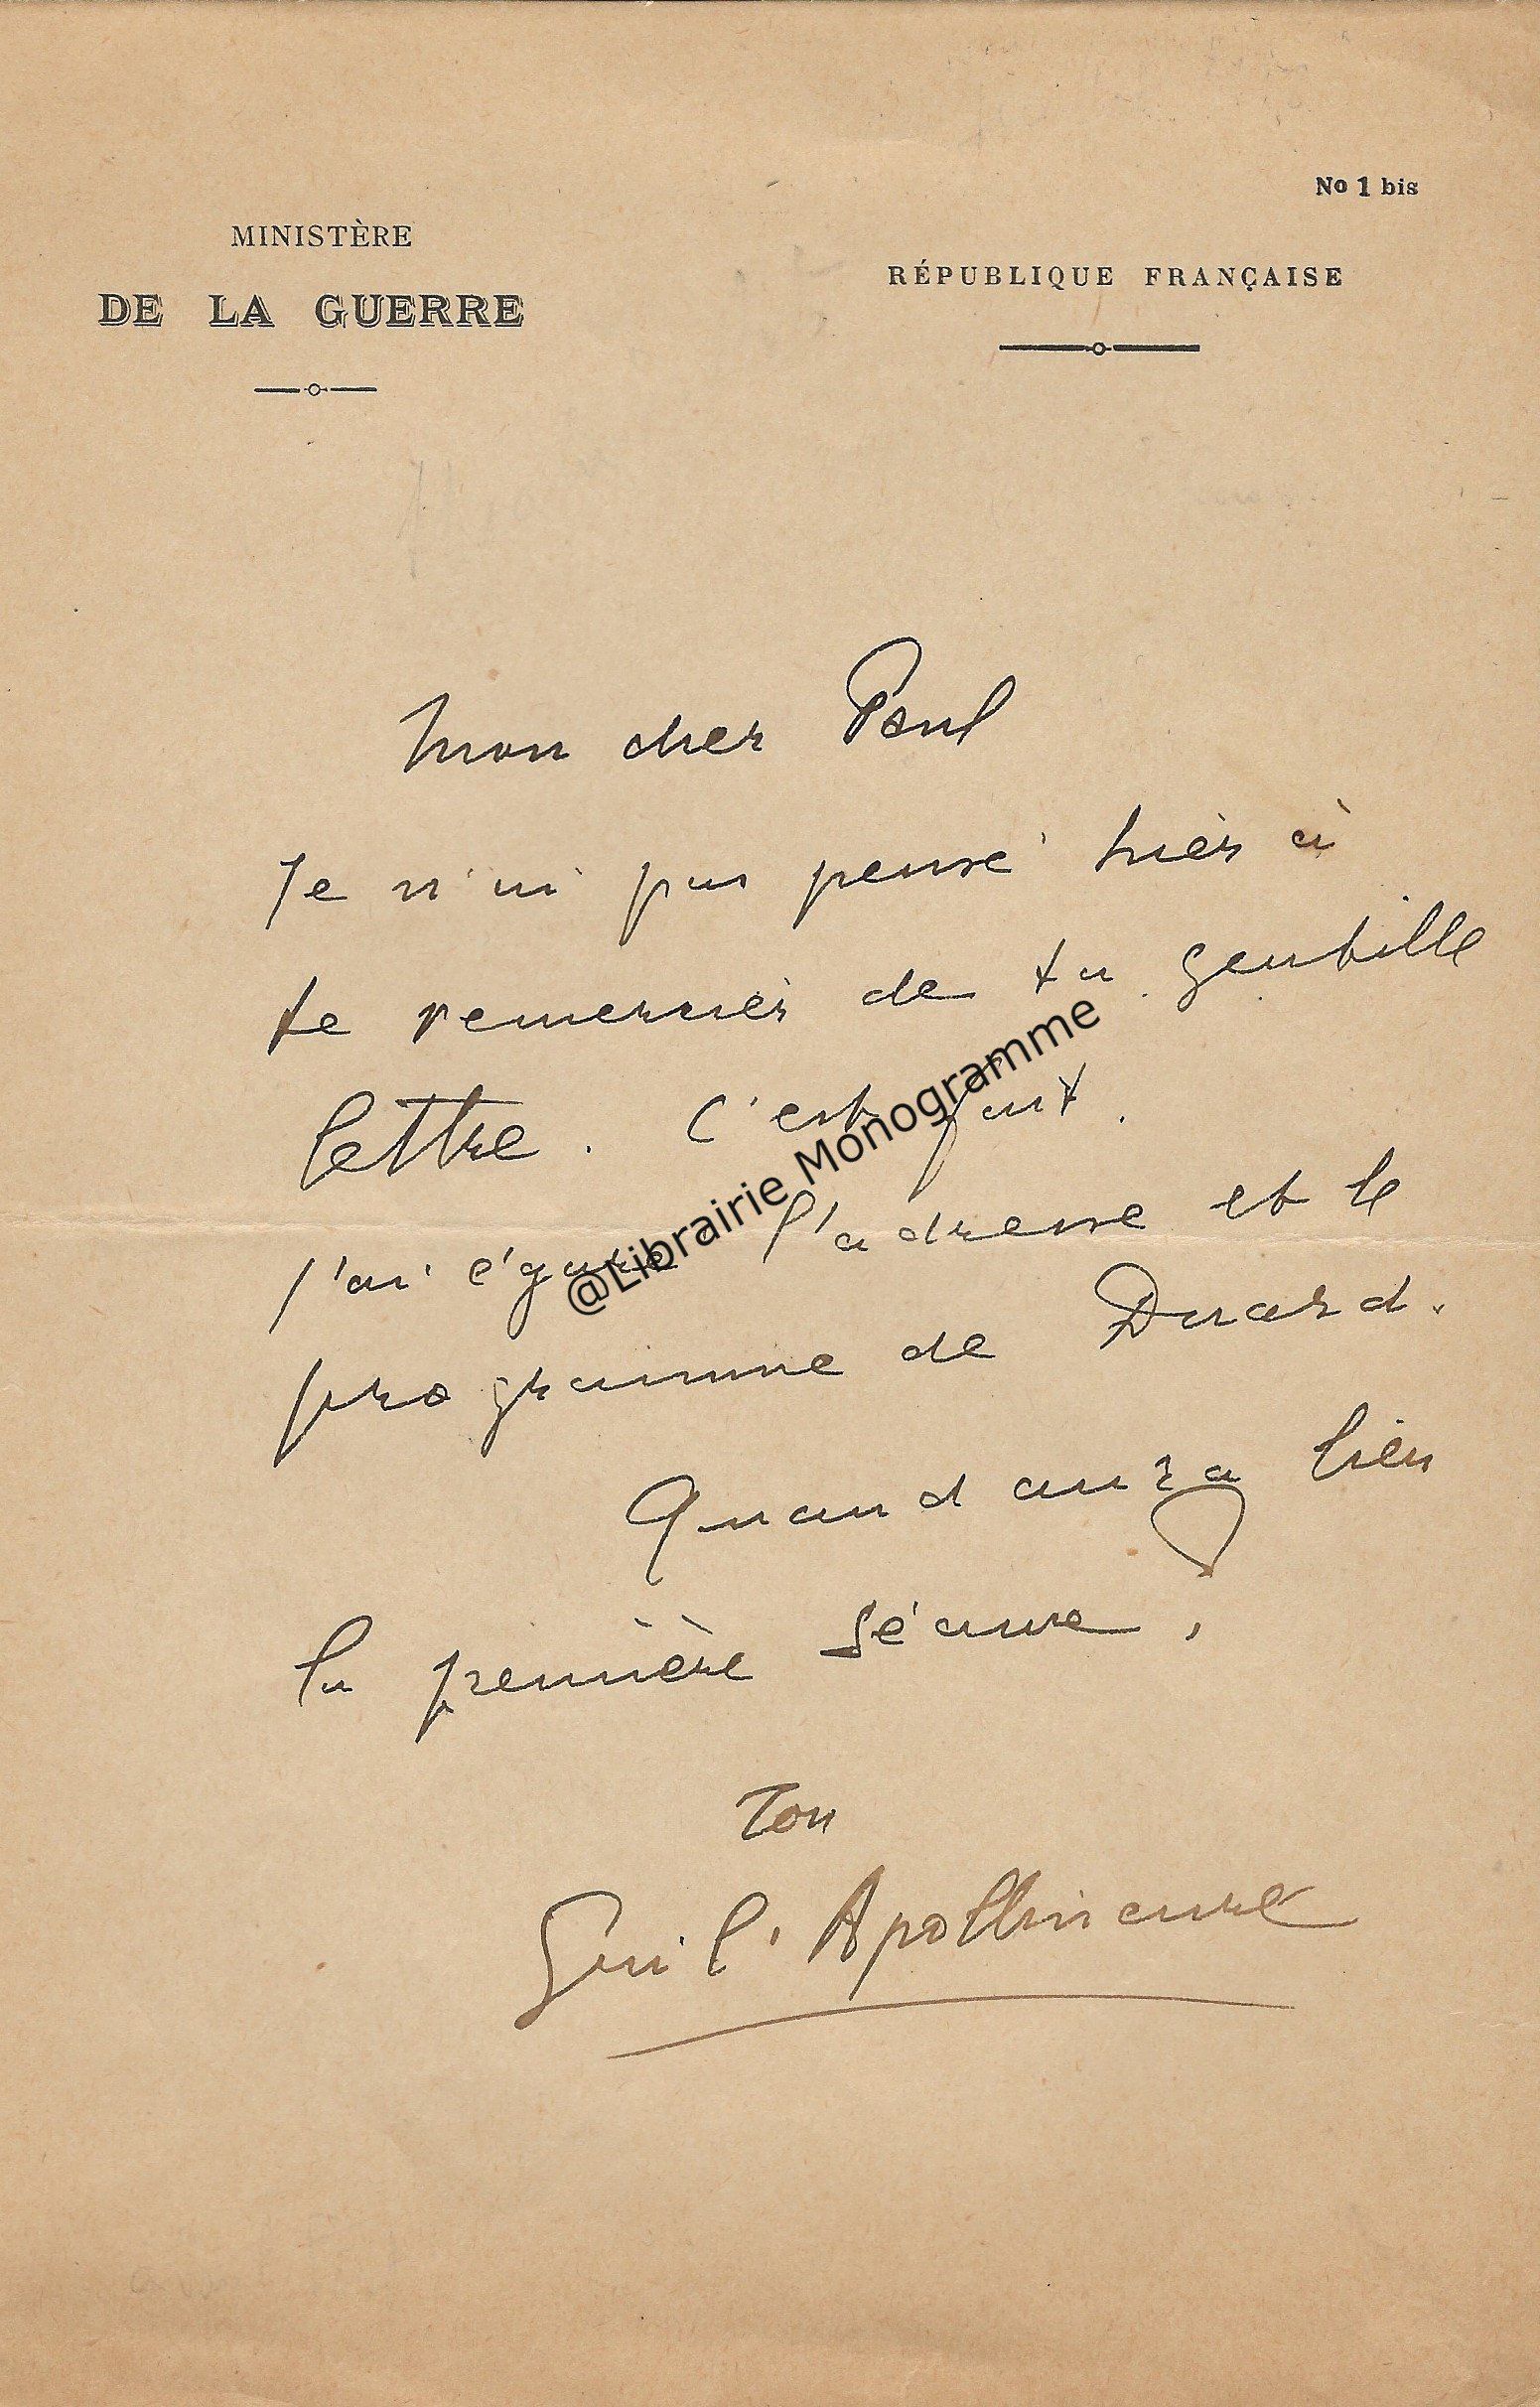 No 1 bis
MINISTÈRE
DE LA GUERRE
RÉPUBLIQUE FRANÇAISE
Mon cher Paul
Je n'ai pas pensé hier à
te remercier de ta gentille
lettre. C'est fait.
J'ai égaré l'adresse et le
programme de Durard.
Quand aura lieu
la première séance,
Ton
Guil. Apollinaire
@Librairie Monogramme